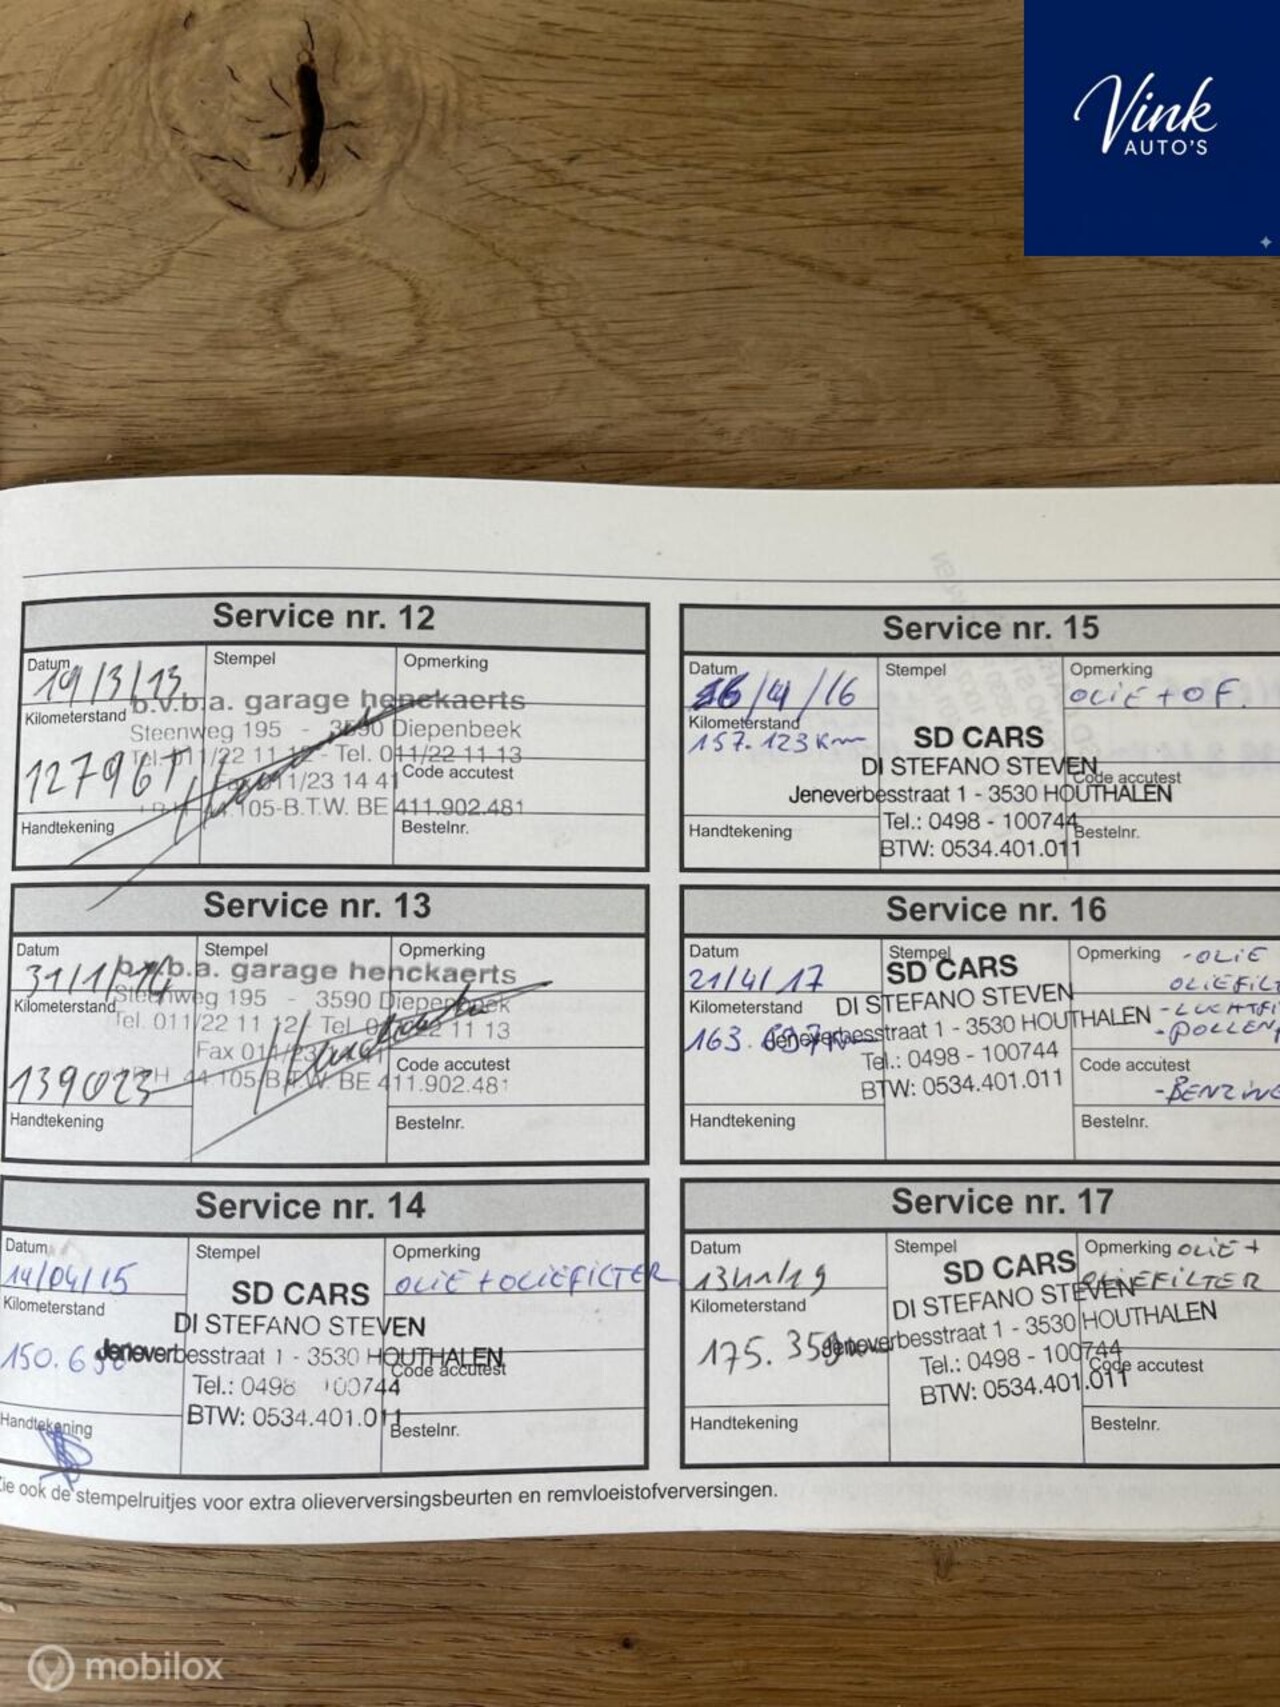 Vink
AUTO'S
Service nr. 12
Datum
Stempel
Opmerking
19/3/13
b.v.b.a. garage henckaerts
Kilometerstand
Steenweg 195 - 3590 Diepenbeek
Tel. 011/22 11 12 - Tel. 011/22 11 13
127967
Fax 011/23 14 41
Code accutest
105-B.T.W. BE 411.902.481
Handtekening
Bestelnr.
Service nr. 13
Datum
Stempel
Opmerking
31/1/14
b.v.b.a. garage henckaerts
Kilometerstand
Steenweg 195 - 3590 Diepenbeek
Tel. 011/22 11 12 Tel. 011/22 11 13
Fax 011/23
Code accutest
139023
44.105-B.T.W. BE 411.902.481
Handtekening
Bestelnr.
Service nr. 14
Datum
Stempel
Opmerking
14/04/15
OLIE + OLIEFILTER
SD CARS
Kilometerstand
DI STEFANO STEVEN
150.6
Jeneverbesstraat 1 - 3530 HOUTHALEN
Code accutest
Tel.: 0498 100744
BTW: 0534.401.011
Handtekening
Bestelnr.
Zie ook de stempelruitjes voor extra olieverversingsbeurten en remvloeistofverversingen.
Service nr. 15
Datum
Stempel
Opmerking
/4/16
OLIE + OF.
Kilometerstand
157.123 Km
SD CARS
DI STEFANO STEVEN
Code accutest
Jeneverbesstraat 1 - 3530 HOUTHALEN
Tel.: 0498 - 100744
Handtekening
Bestelnr.
BTW: 0534.401.011
Service nr. 16
Datum
Stempel
Opmerking
- OLIE
21/4/17
SD CARS
OLIEFILT
Kilometerstand
DI STEFANO STEVEN
- LUCHTFI
163.
Jeneverbesstraat 1 - 3530 HOUTHALEN
- POLLEN
Tel.: 0498 - 100744
Code accutest
BTW: 0534.401.011
- BENZINE
Handtekening
Bestelnr.
Service nr. 17
Datum
Stempel
Opmerking
OLIE +
13/11/19
SD CARS
OLIEFILTER
Kilometerstand
DI STEFANO STEVEN
175.35
Jeneverbesstraat 1 - 3530 HOUTHALEN
Tel.: 0498 - 100744
Code accutest
BTW: 0534.401.011
Handtekening
Bestelnr.
mobilox